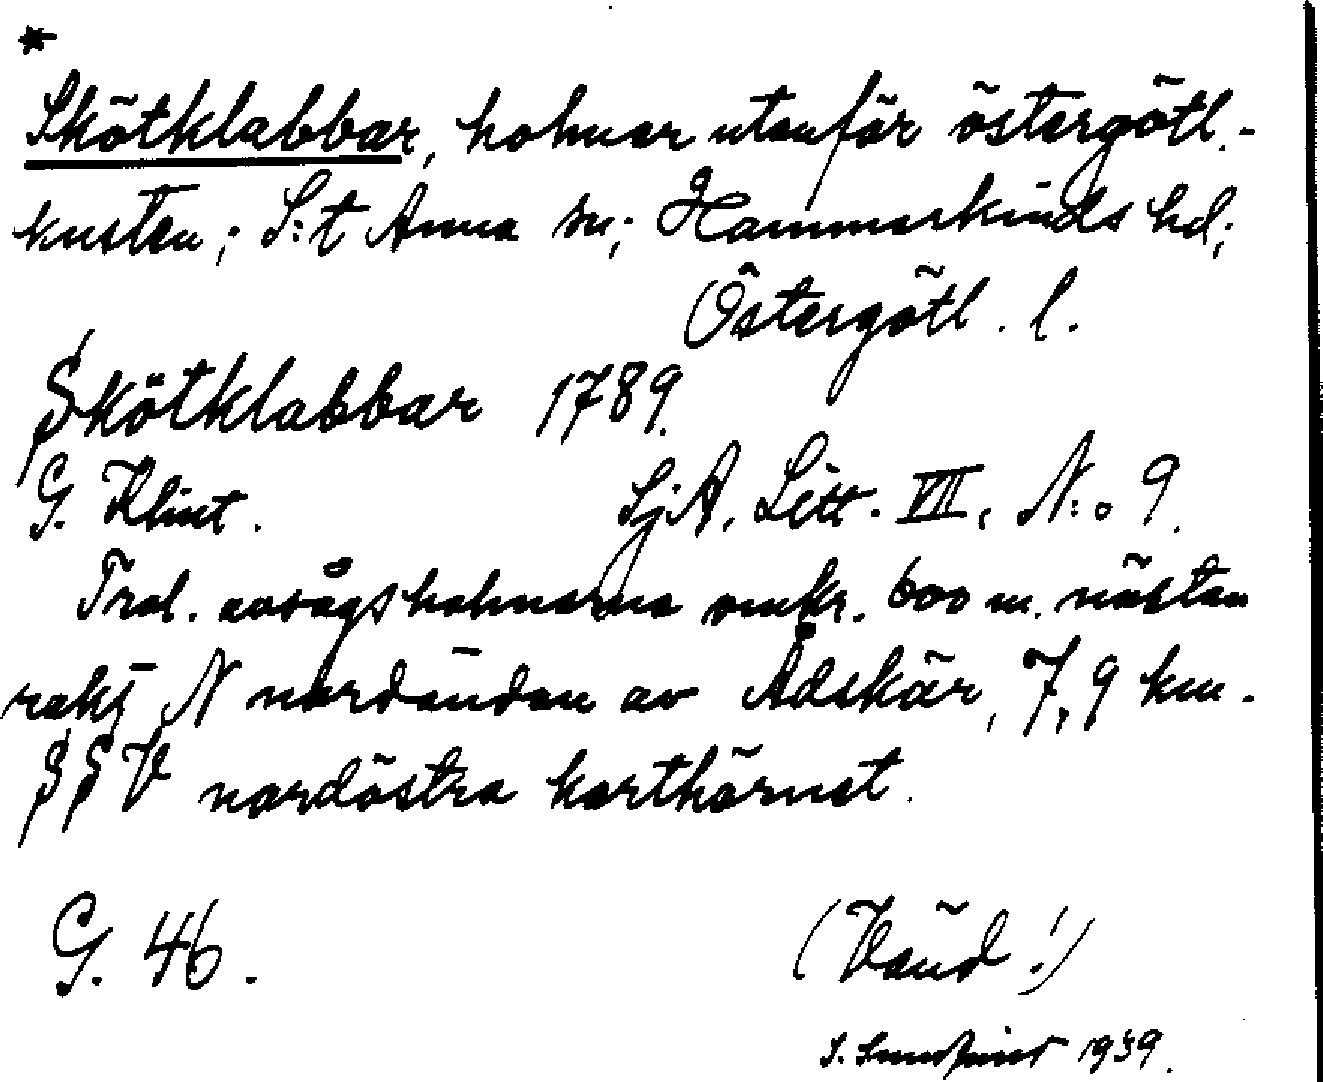 *
Skötklabbar, holmar utanför östergötl.-
kusten; S:t Anna sn; Hammarkinds hd;
Östergötl. l.
Skötklabbar 1789.
G. Klint. SjA, Litt. VII, N:o 9.
Trol. avsågs holmarna omkr. 600 m. nästan
rakt N nordändan av Ådskär, 7,9 km.
SSV nordöstra karthörnet.
G. 46. (Vänd!)
S. 1939.